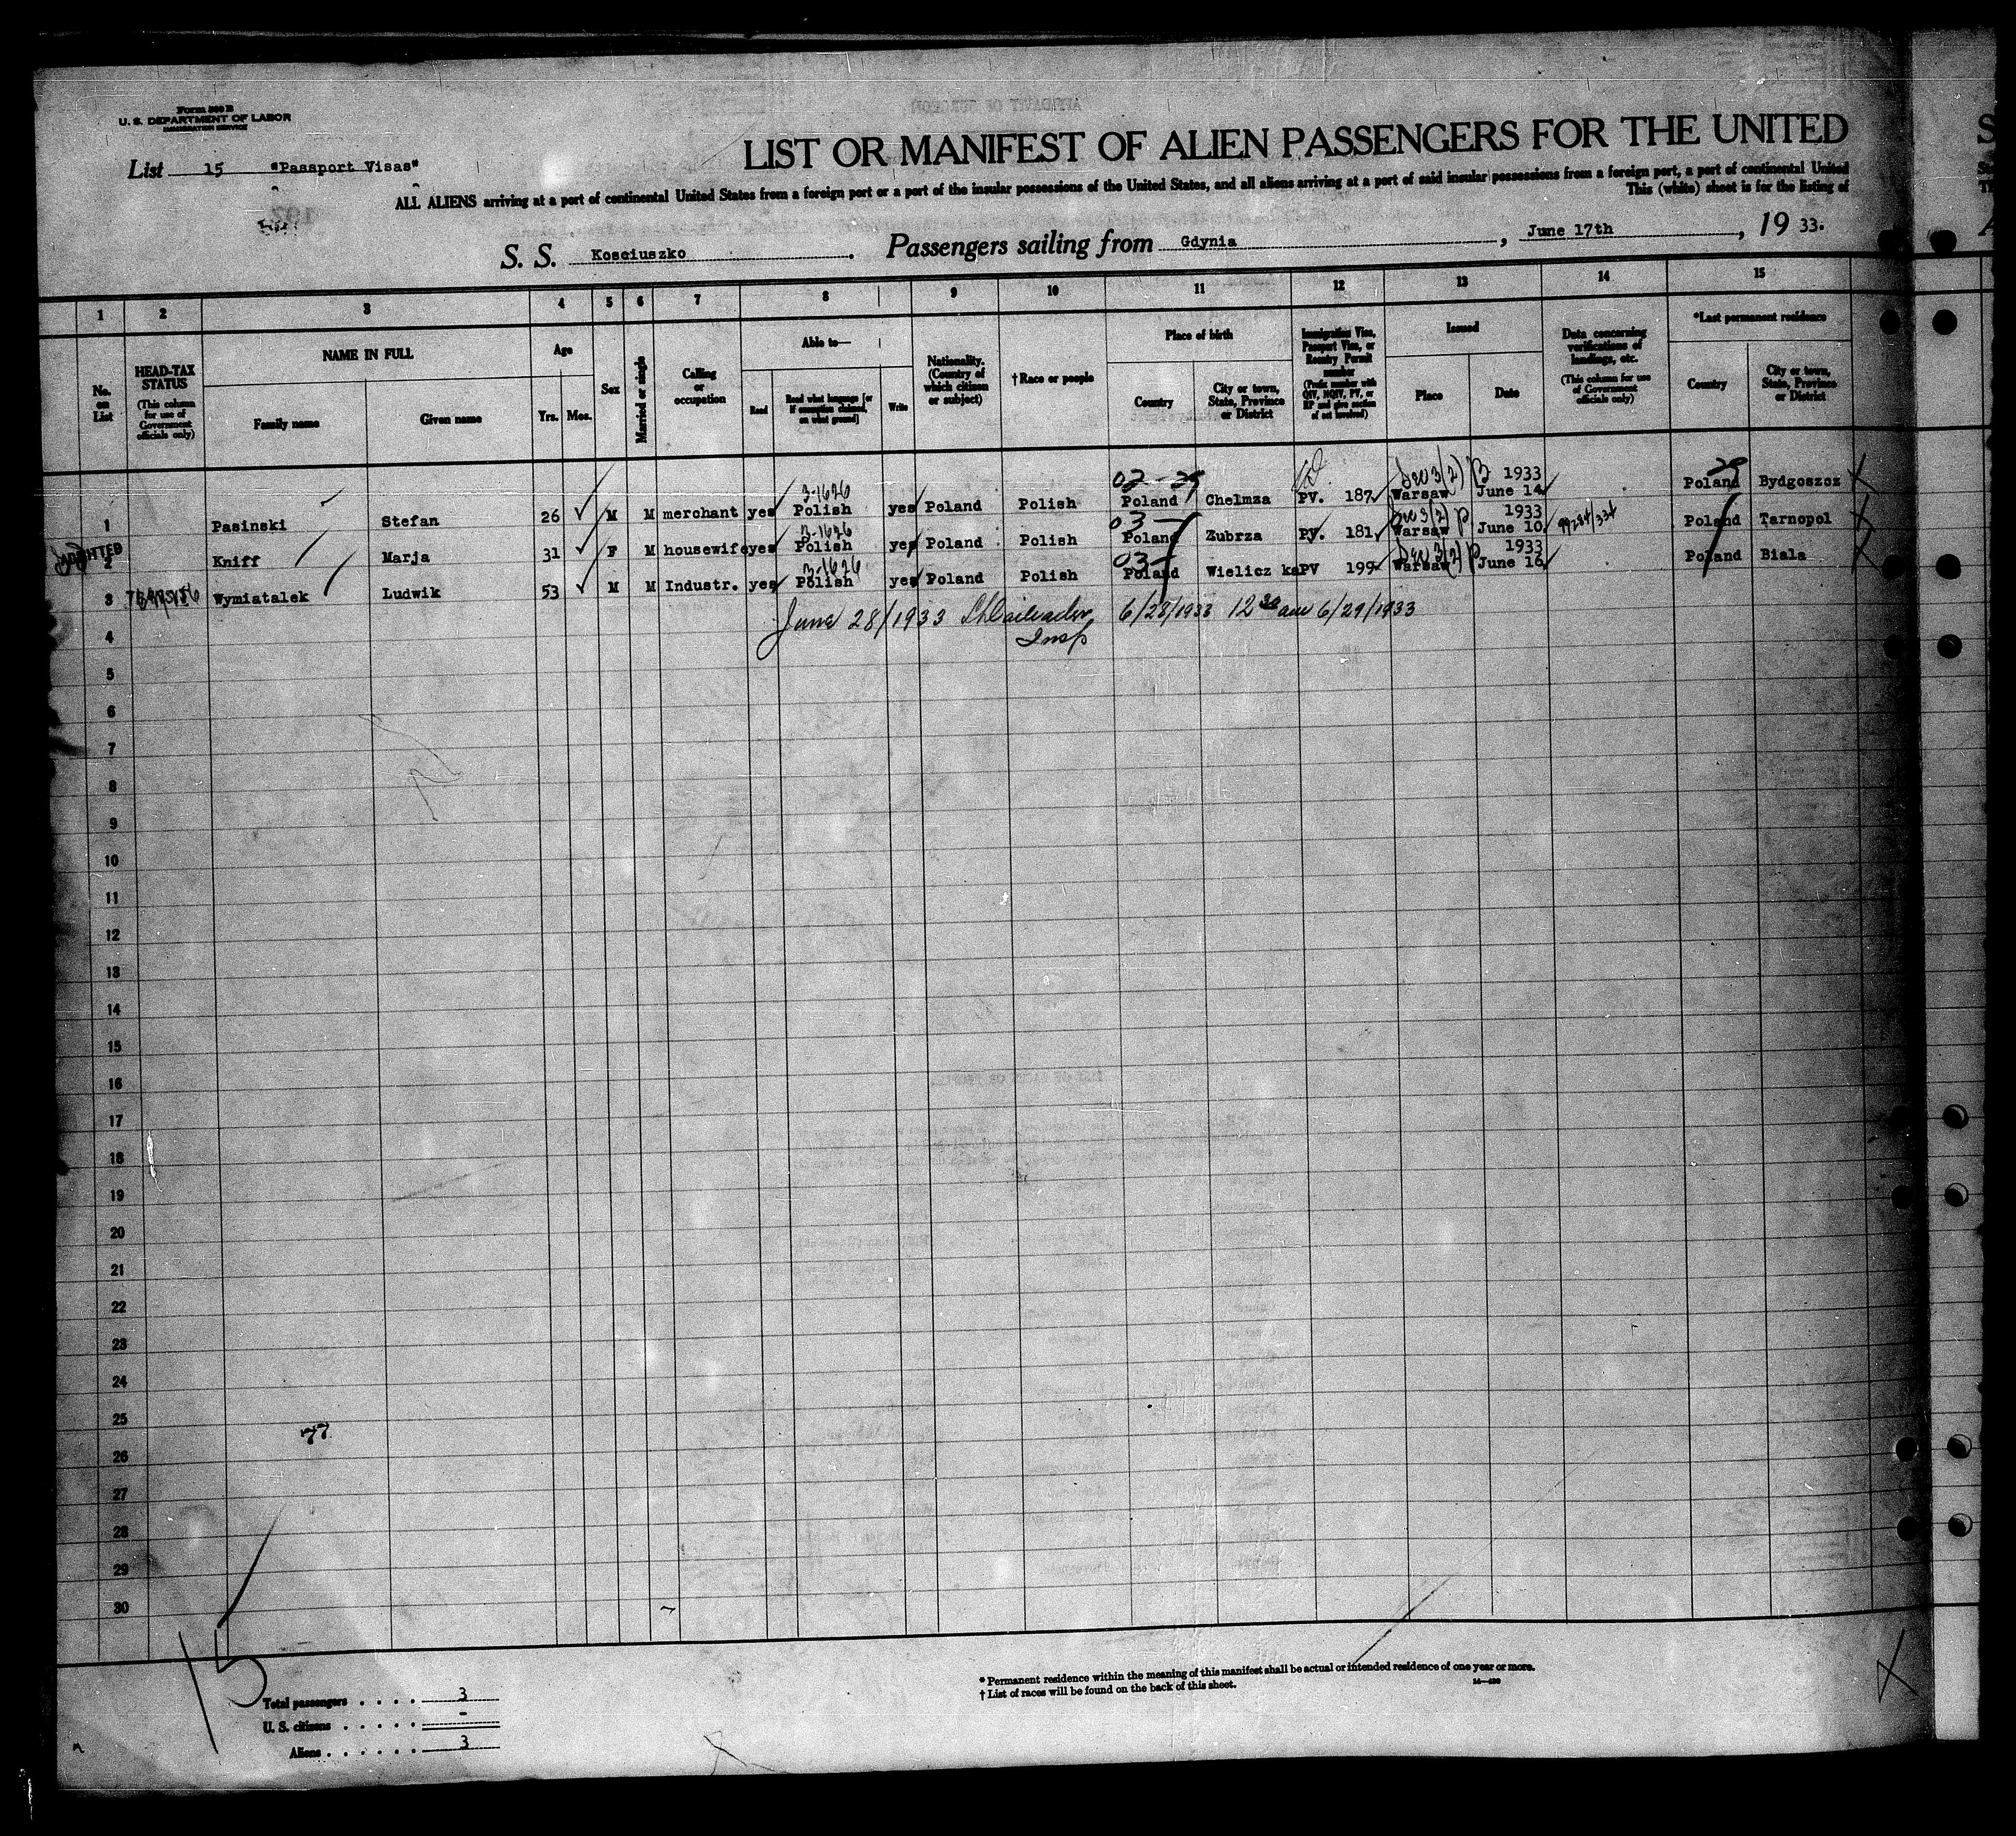 Form 500 B
U. S. DEPARTMENT OF LABOR
IMMIGRATION SERVICE
List 15 "Passport Visas"
LIST OR MANIFEST OF ALIEN PASSENGERS FOR THE UNITED
ALL ALIENS arriving at a port of continental United States from a foreign port or a part of the insular possessions of the United States, and all aliens arriving at a port of said insular possessions from a foreign port, a part of continental United
This (white) sheet is for the listing of
S. S. Kosciuszko. Passengers sailing from Gdynia, June 17th, 19 33.
1 2 3 4 5 6 7 8 9 10 11 12 13 14 15
No. on List
HEAD-TAX STATUS (This column for use of Government officials only)
NAME IN FULL
Family name Given name
Age
Yrs. Mos.
Sex
Married or single
Calling or occupation
Able to—
Read Read what language [or if exemption claimed, on what ground] Write
Nationality. (Country of which citizen or subject)
†Race or people
Place of birth
Country City or town, State, Province or District
Immigration Visa, Passport Visa, or Reentry Permit number (Prefix number with QIV, NQIV, PV, or RP and give section of act involved)
Issued
Place Date
Data concerning verifications of landings, etc. (This column for use of Government officials only)
*Last permanent residence
Country City or town, State, Province or District
3-1626 02-29 Sec 3(2) 1933 29
1 Pasinski Stefan 26 M M merchant yes Polish yes Poland Polish Poland Chelmza PV. 187 Warsaw June 14 Poland Bydgoszcz
3-1626 03 Sec 3(2) 1933
ADMITTED 2 Kniff Marja 31 F M housewife yes Polish yes Poland Polish Poland Zubrza PV. 181 Warsaw June 10 Poland Tarnopol
3-1626 03 Sec 3(2) 1933
3 Wymiatalek Ludwik 53 M M Industr. yes Polish yes Poland Polish Poland Wielicz ka PV 199 Warsaw June 16 Poland Biala
4 June 28/1933 6/28/1933 12 30 am 6/29/1933
Insp
5
6
7
8
9
10
11
12
13
14
15
16
17
18
19
20
21
22
23
24
25
77
26
27
28
29
30
15
Total passengers . . . . 3
U. S. citizens . . . . . -
Aliens . . . . . . 3
* Permanent residence within the meaning of this manifest shall be actual or intended residence of one year or more.
† List of races will be found on the back of this sheet.